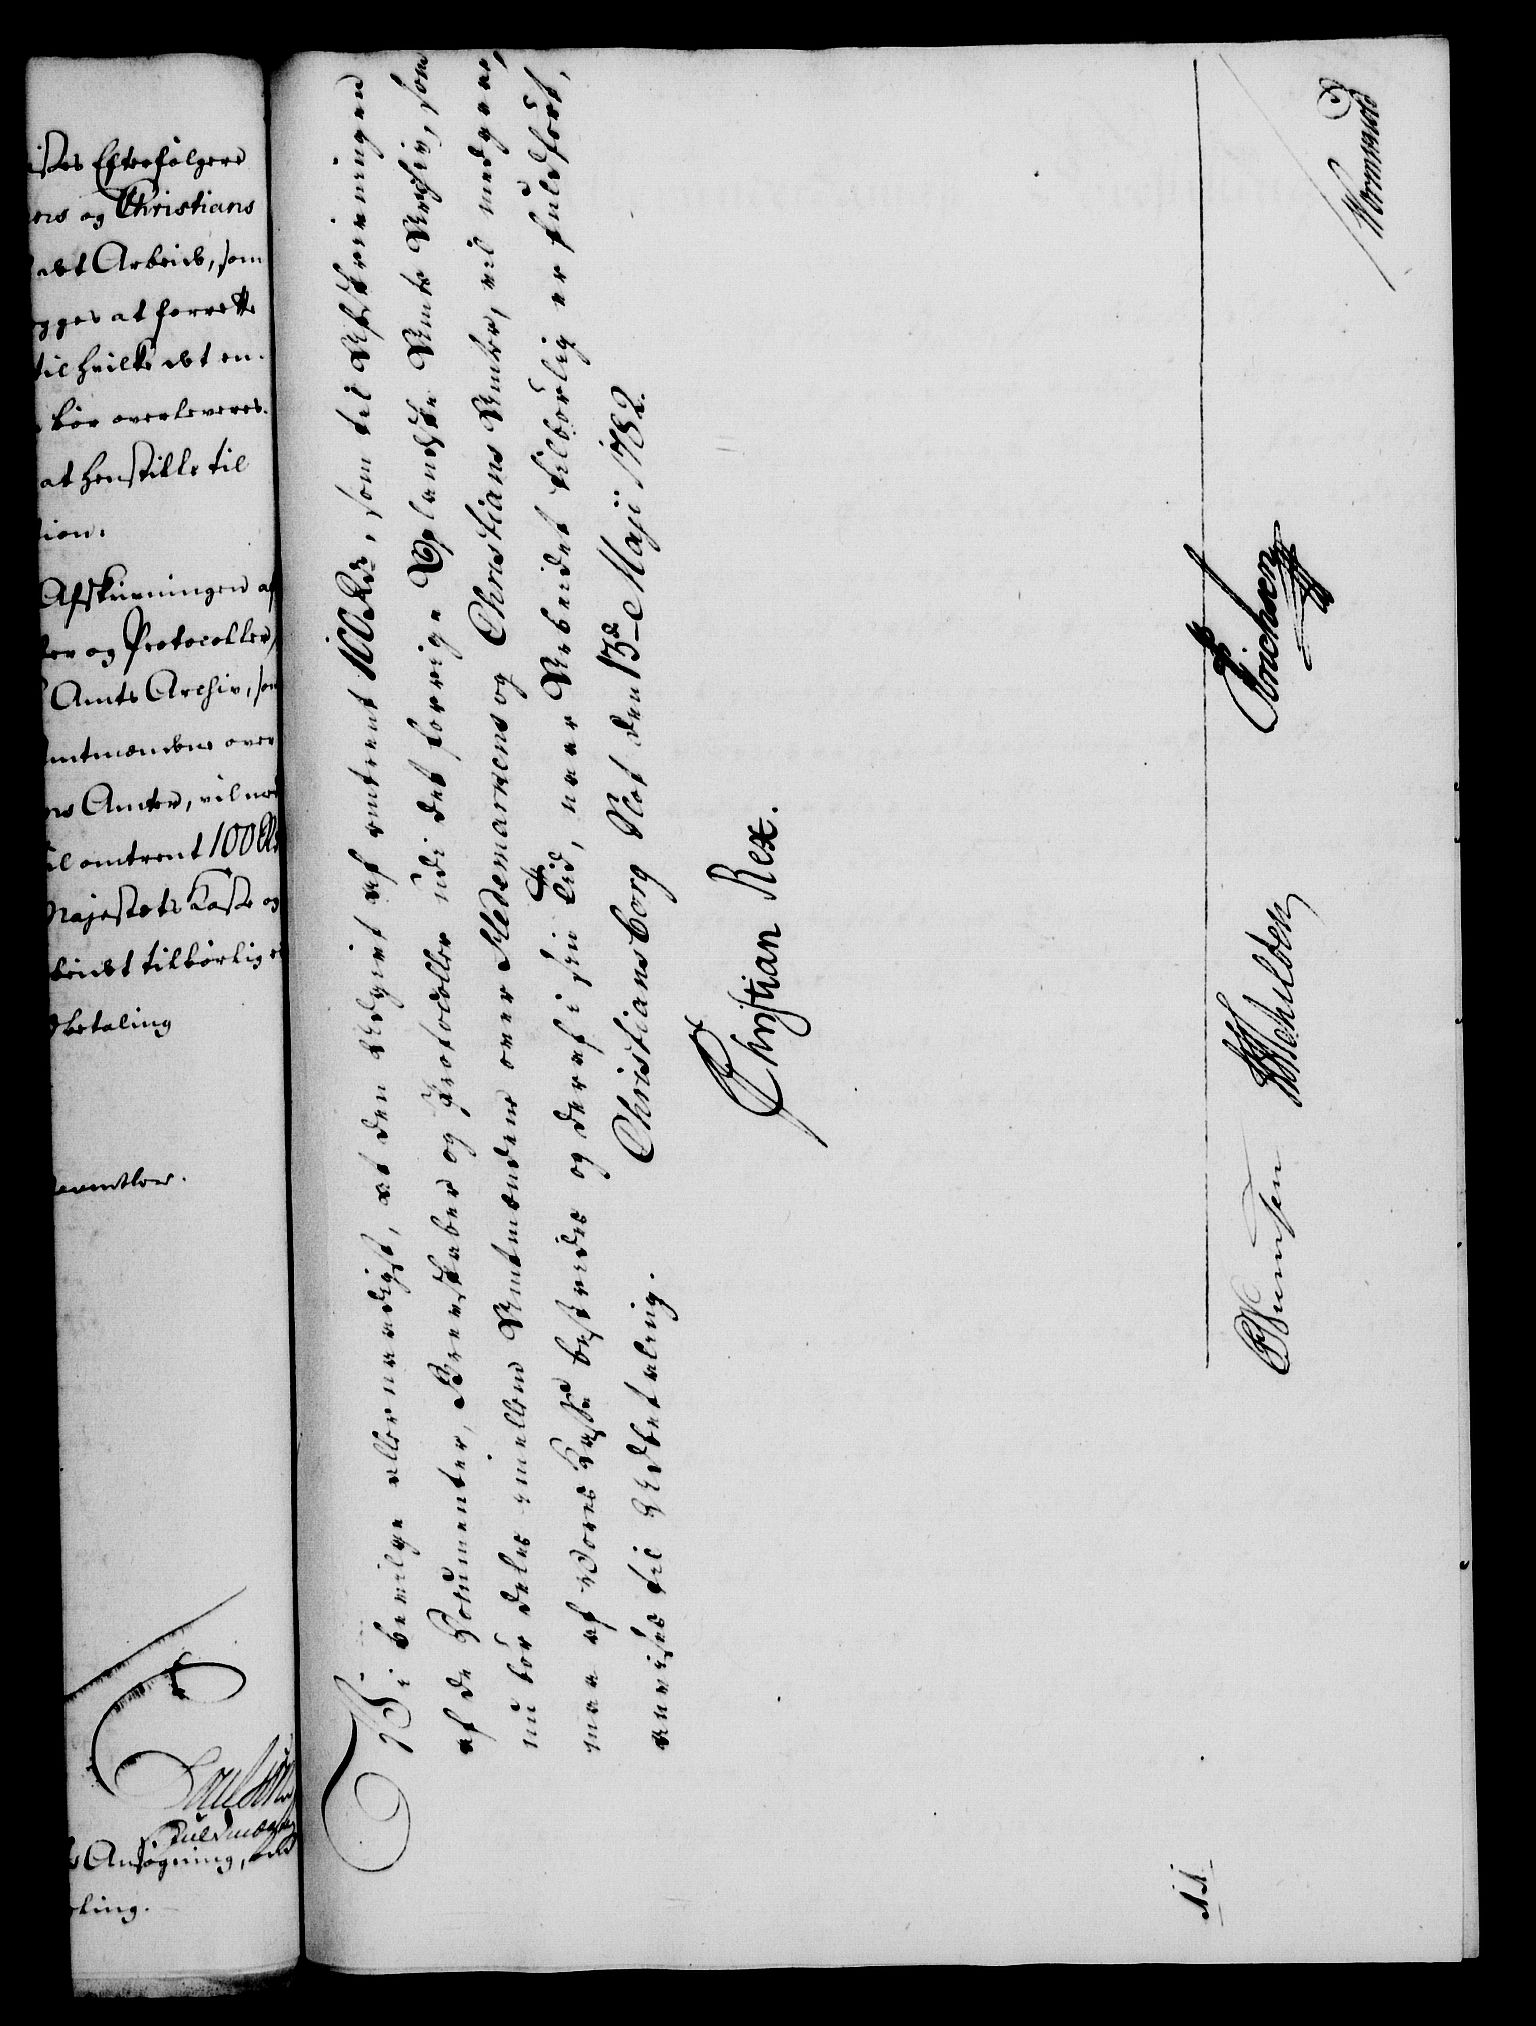 istes Efterfølgere
ers og Christians
det Arbeide, som
gges at forrette
til hvilke det en-
bør overleveres.
at henstille til
tion.
Afskrivningen af
ter og Protocoller,
Amts Archiv, som
mtmændene over
ns Amter, vil med
til omtrent 100 Rd
Majestets Kasse og
beidet tilbørlig er
dbetaling
Ansøgning,
ling.
Vi bevilge allernaadigst, at den Udgivt af omtrent 100 Rdr, som til Afskrivningen
af de Dokumenter, Brevskaber og Protocoller udi det forrige Oplandske Amts Archiv, som
nu bør deles imellem Amtmændene over Hedemarkens og Christians Amter, vil medgaae,
maa af Vores Kasse bestrides og deraf i sin Tid, naar Arbeidet tilbørlig er fuldført,
anvises til Udbetaling. Christiansborg Slot den 13de Maji 1782.
Christian Rex.
Schilden
Erichsen
Wormskiold
11.